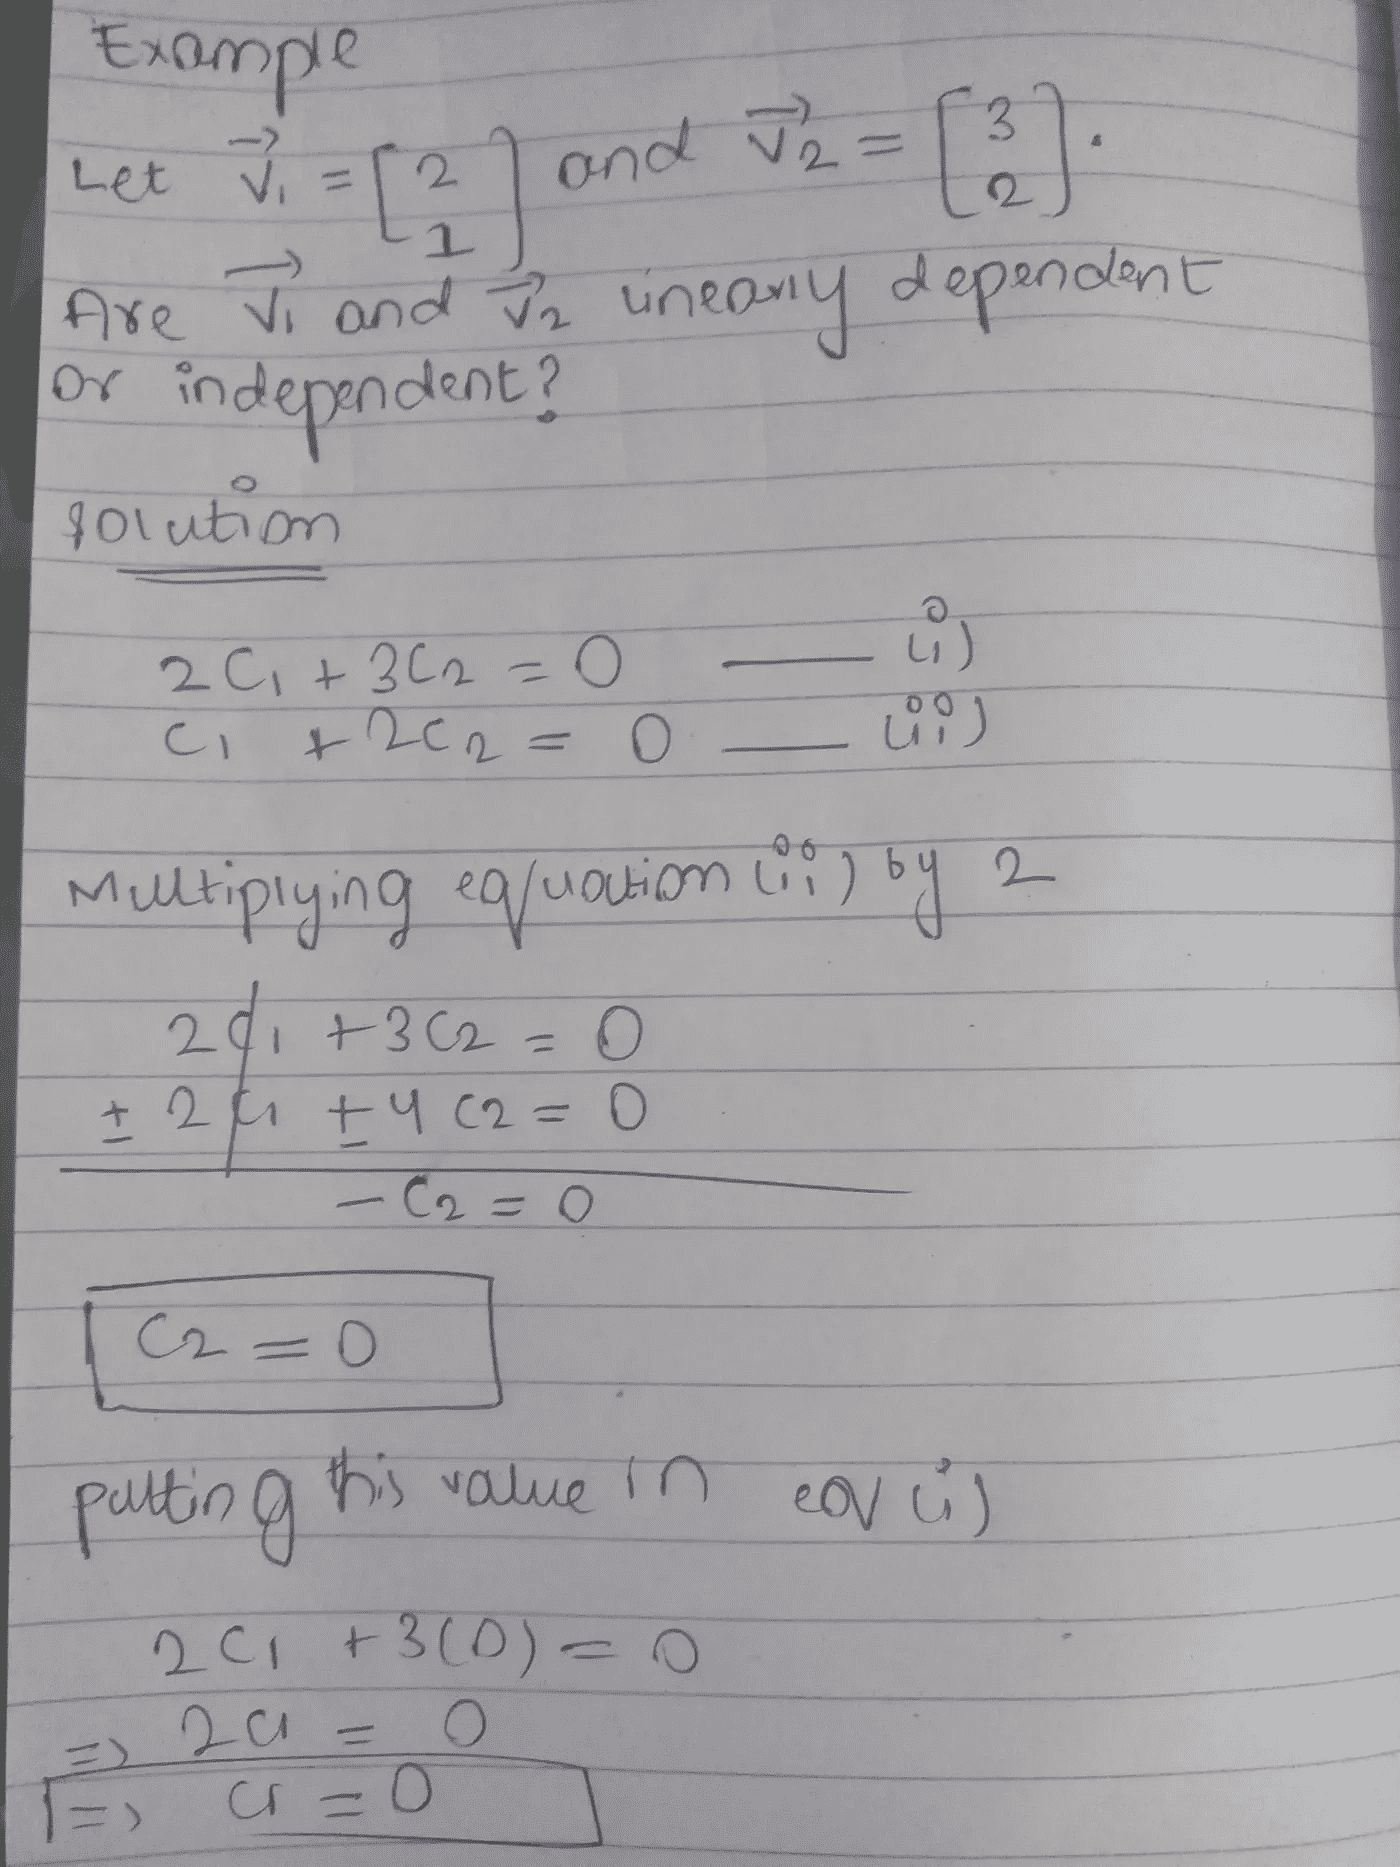 Example
Let v⃗₁ = [2 1] and v⃗₂ = [3 2].
Are v⃗₁ and v⃗₂ linearly dependent
or independent?
solution
2C₁ + 3C₂ = 0 — (i)
C₁ + 2C₂ = 0 — (ii)
Multiplying equation (ii) by 2
2C₁ + 3C₂ = 0
± 2C₁ ± 4C₂ = 0
- C₂ = 0
C₂ = 0
putting this value in eq (i)
2C₁ + 3(0) = 0
=> 2C₁ = 0
=> C₁ = 0